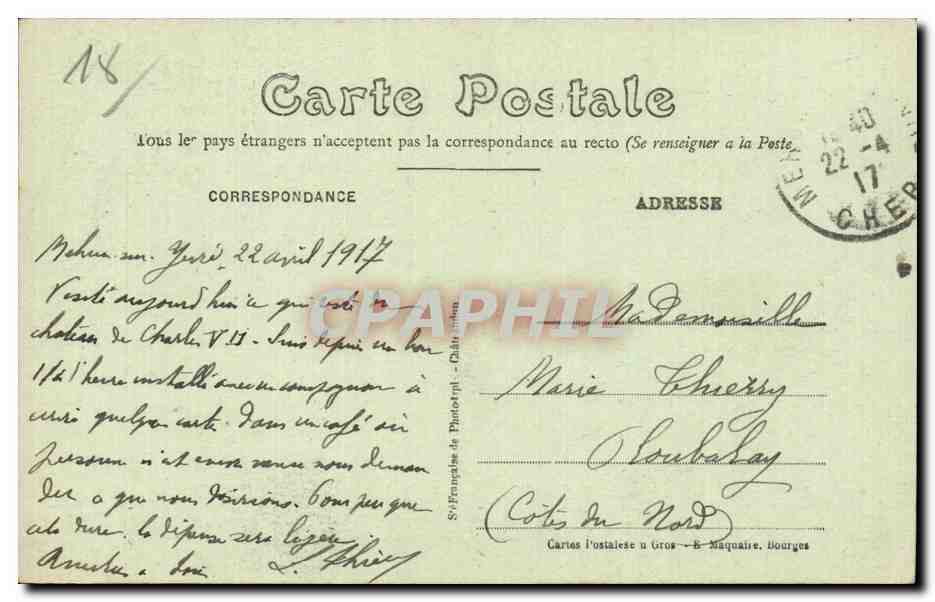 18
Carte Postale
Tous les pays étrangers n'acceptent pas la correspondance au recto (Se renseigner a la Poste
MEH
40
22 -4
17
CHER
CORRESPONDANCE
ADRESSE
Mehun-sur-Yevre 22 avril 1917
Visité aujourd'hui ce qui reste du
chateau de Charles VII - Suis depuis un bon
1/4 d'heure installé avec un compagnon à
ecrire quelques cartes dans un café où
personne n'est encore venu nous deman
der ce que nous désirions. Pour peu que
cela dure, la dépense sera légère
L. Thierry
CPAPHIL
Sté Française de Phototypie - Châteaudun
Mademoiselle
Marie Thierry
Ploubalay
(Côtes du Nord)
Cartes Postales en Gros - E. Maquaire, Bourges